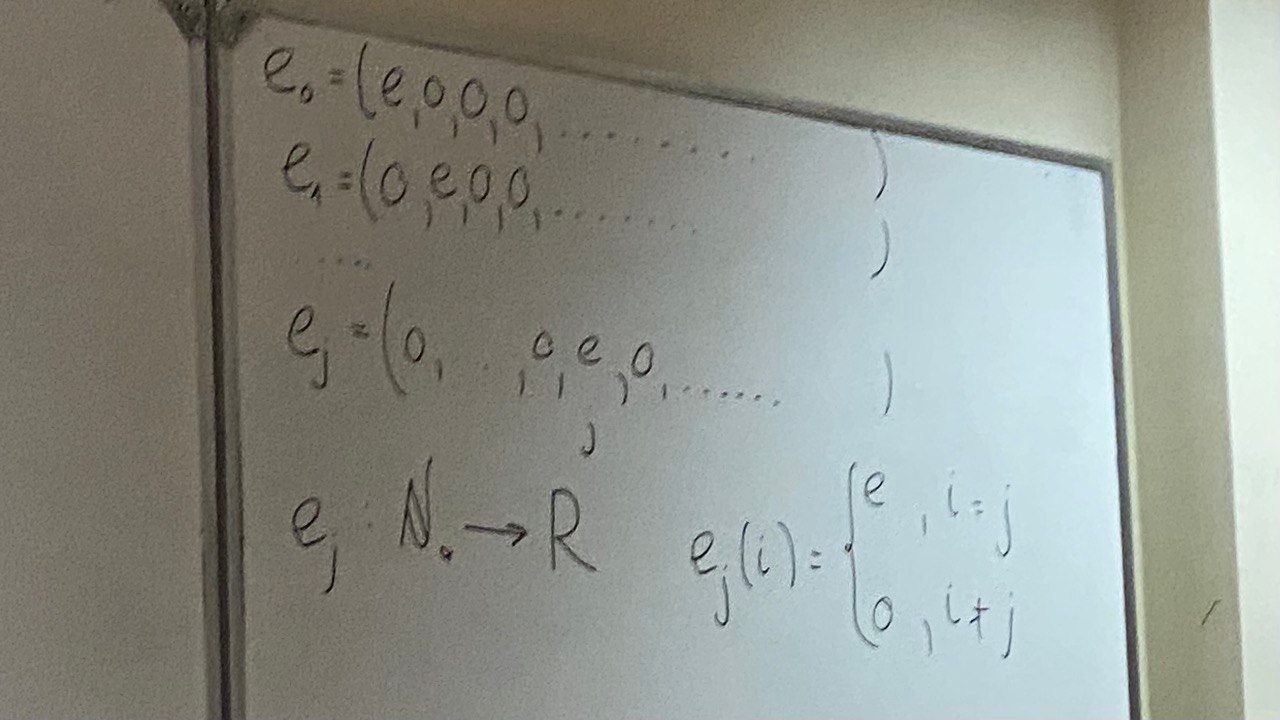 e₀ = (e, 0, 0, 0, ........ )
e₁ = (0, e, 0, 0, ........ )
.....
eⱼ = (0, ..., 0, e, 0, ....... )
j
eⱼ : N₀ → R eⱼ(i) = { e , i = j
0 , i ≠ j